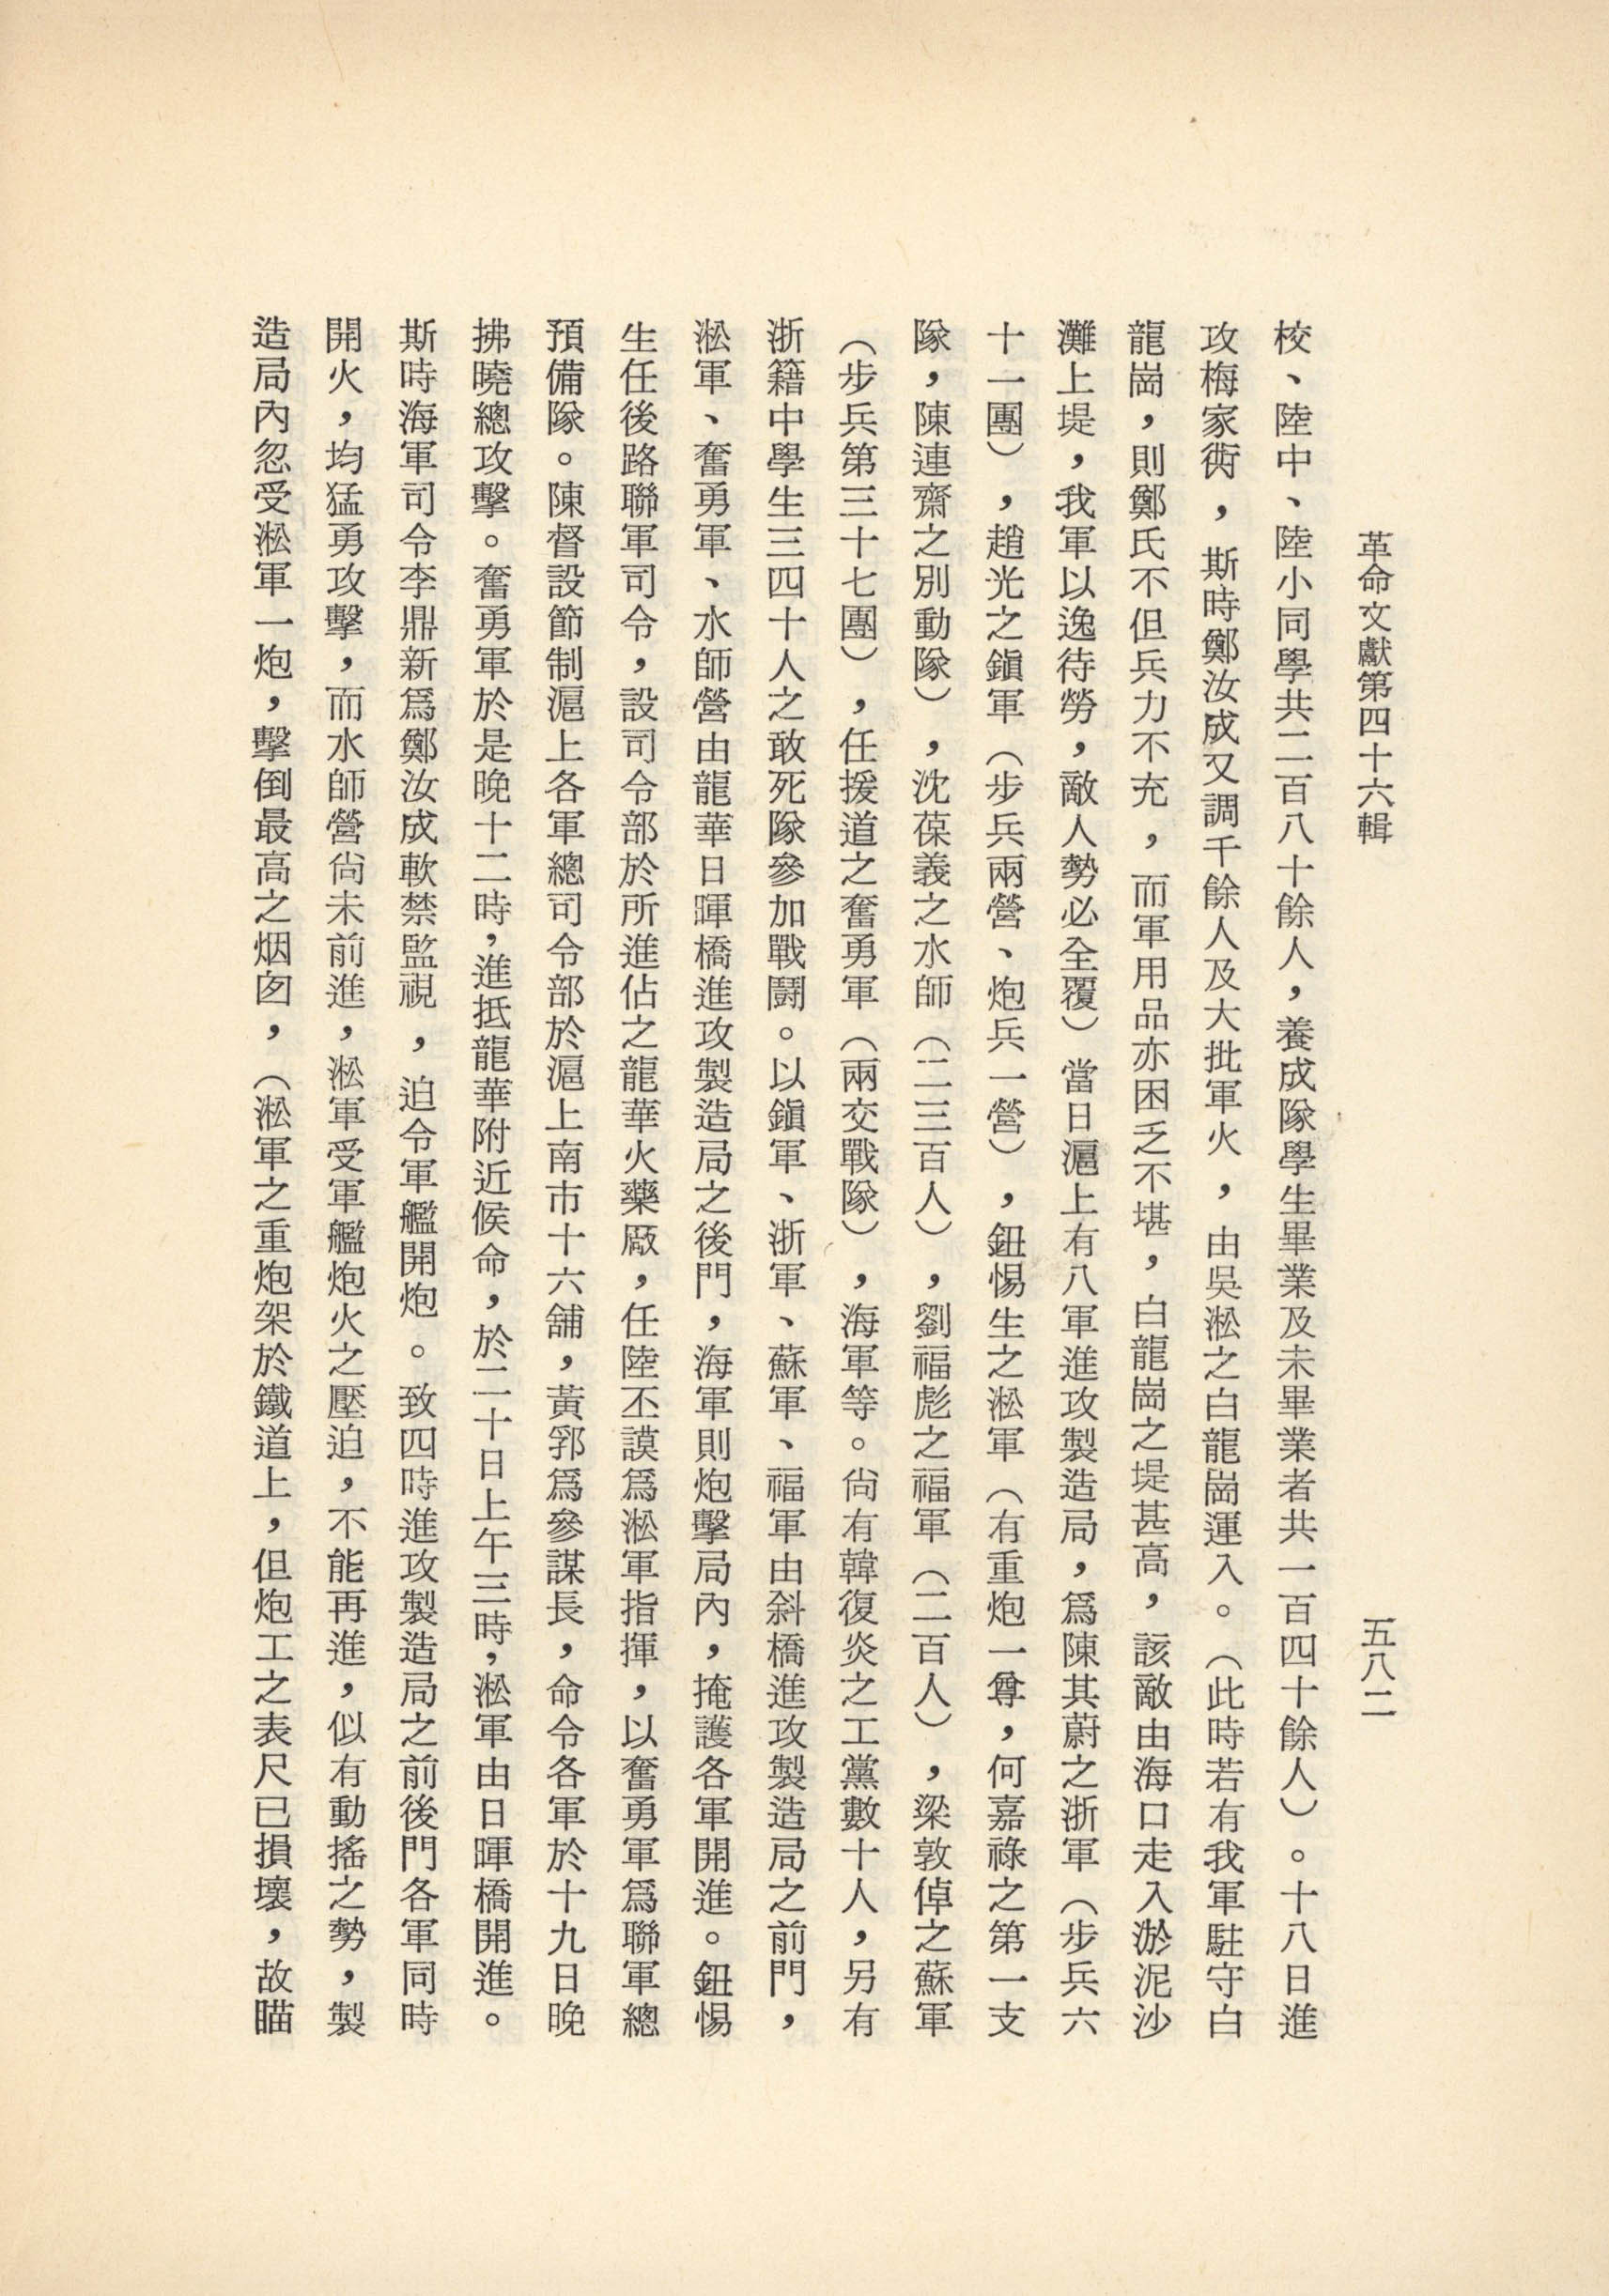 革命文獻第四十六輯
五八二
校、陸中、陸小同學共二百八十餘人，養成隊學生畢業及未畢業者共一百四十餘人）。十八日進
攻梅家衖，斯時鄭汝成又調千餘人及大批軍火，由吳淞之白龍崗運入。（此時若有我軍駐守白
龍崗，則鄭氏不但兵力不充，而軍用品亦困乏不堪，白龍崗之堤甚高，該敵由海口走入淤泥沙
灘上堤，我軍以逸待勞，敵人勢必全覆）當日滬上有八軍進攻製造局，爲陳其蔚之浙軍（步兵六
十一團），趙光之鎭軍（步兵兩營、炮兵一營），鈕惕生之淞軍（有重炮一尊，何嘉祿之第一支
隊，陳連齋之別動隊），沈葆義之水師（二三百人），劉福彪之福軍（二百人），梁敦倬之蘇軍
（步兵第三十七團），任援道之奮勇軍（兩交戰隊），海軍等。尙有韓復炎之工黨數十人，另有
浙籍中學生三四十人之敢死隊參加戰鬪。以鎭軍、浙軍、蘇軍、福軍由斜橋進攻製造局之前門，
淞軍、奮勇軍、水師營由龍華日暉橋進攻製造局之後門，海軍則炮擊局內，掩護各軍開進。鈕惕
生任後路聯軍司令，設司令部於所進佔之龍華火藥廠，任陸丕謨爲淞軍指揮，以奮勇軍爲聯軍總
預備隊。陳督設節制滬上各軍總司令部於滬上南市十六舖，黃郛爲參謀長，命令各軍於十九日晚
拂曉總攻擊。奮勇軍於是晚十二時，進抵龍華附近候命，於二十日上午三時，淞軍由日暉橋開進。
斯時海軍司令李鼎新爲鄭汝成軟禁監視，迫令軍艦開炮。致四時進攻製造局之前後門各軍同時
開火，均猛勇攻擊，而水師營尙未前進，淞軍受軍艦炮火之壓迫，不能再進，似有動搖之勢，製
造局內忽受淞軍一炮，擊倒最高之烟囱，（淞軍之重炮架於鐵道上，但炮工之表尺已損壞，故瞄